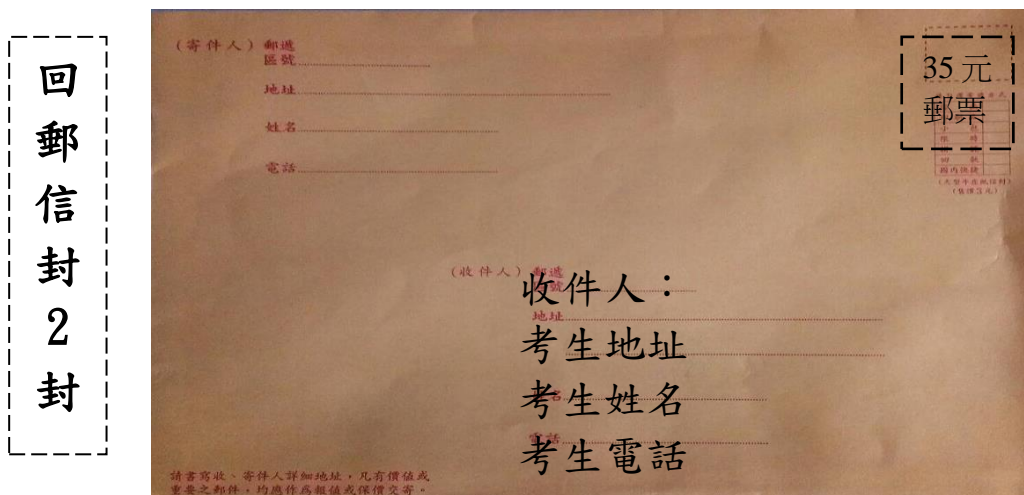 回郵信封2封
(寄件人) 郵遞
區號
地址
姓名
電話
35 元
郵票
國內快捷
(大型牛皮紙信封)
(收件人) 郵遞
收件人：
地址
考生地址
考生姓名
電話
考生電話
請書寫收、寄件人詳細地址，凡有價值或
重要之郵件，均應作為報值或保價交寄。